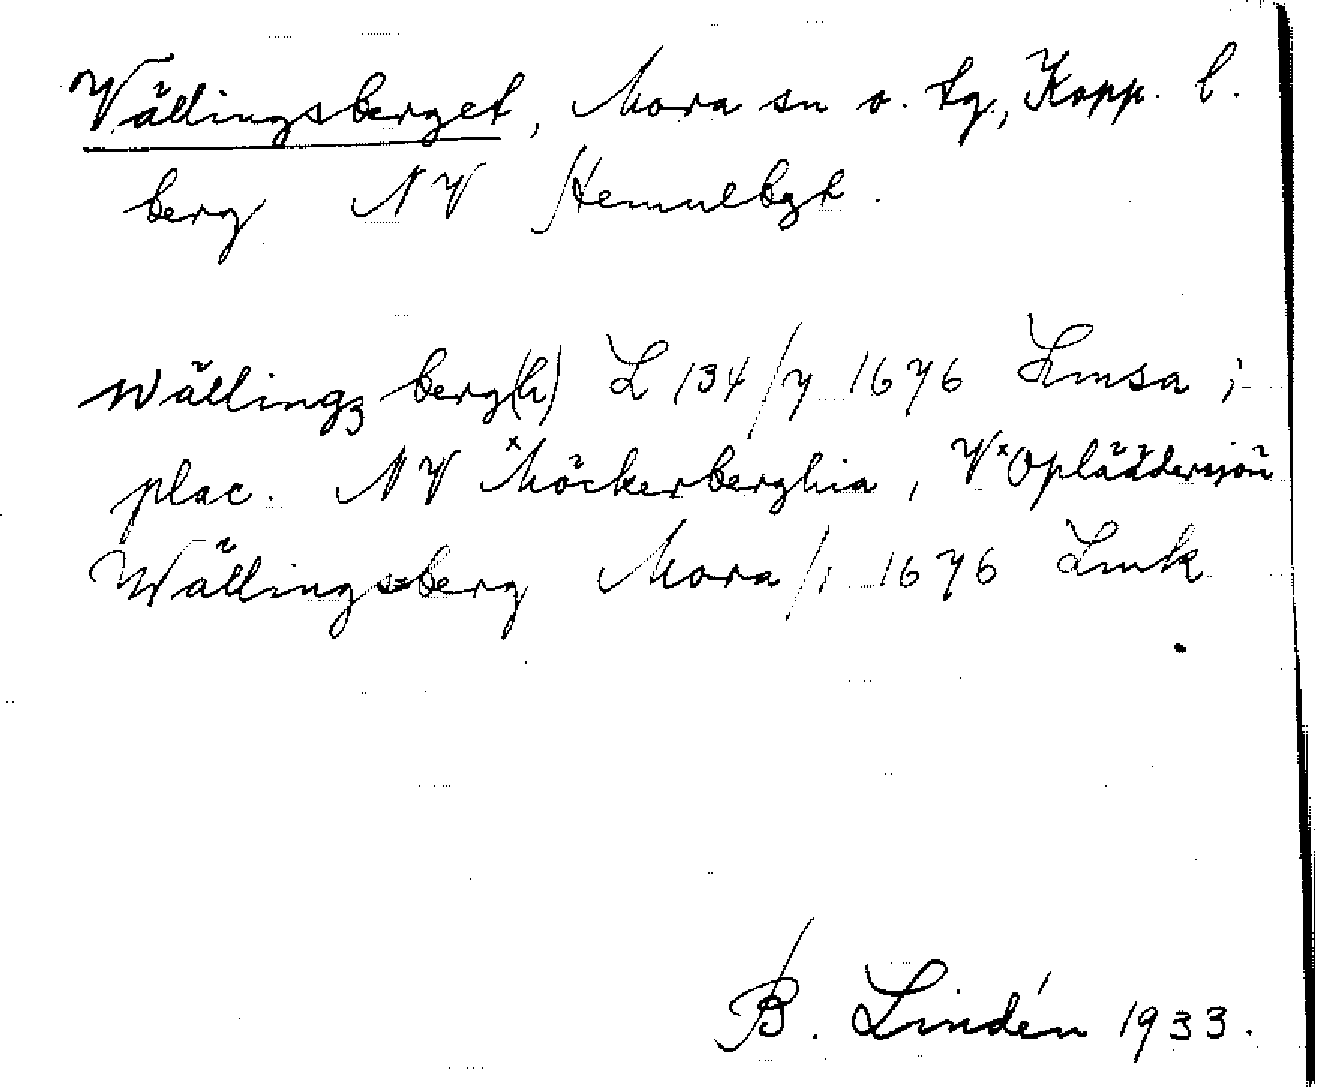 Vällingsberget, Mora sn o. tg, Kopp. l.
berg NV Hemulbgt.
wällingz berg(h) L 134/7 1676 Lmsa ;
plac. NV ˣMöckerberghia, VˣOpläddersjön
Wällingsberg Mora/1 1676 Lmk
B. Lindén 1933.